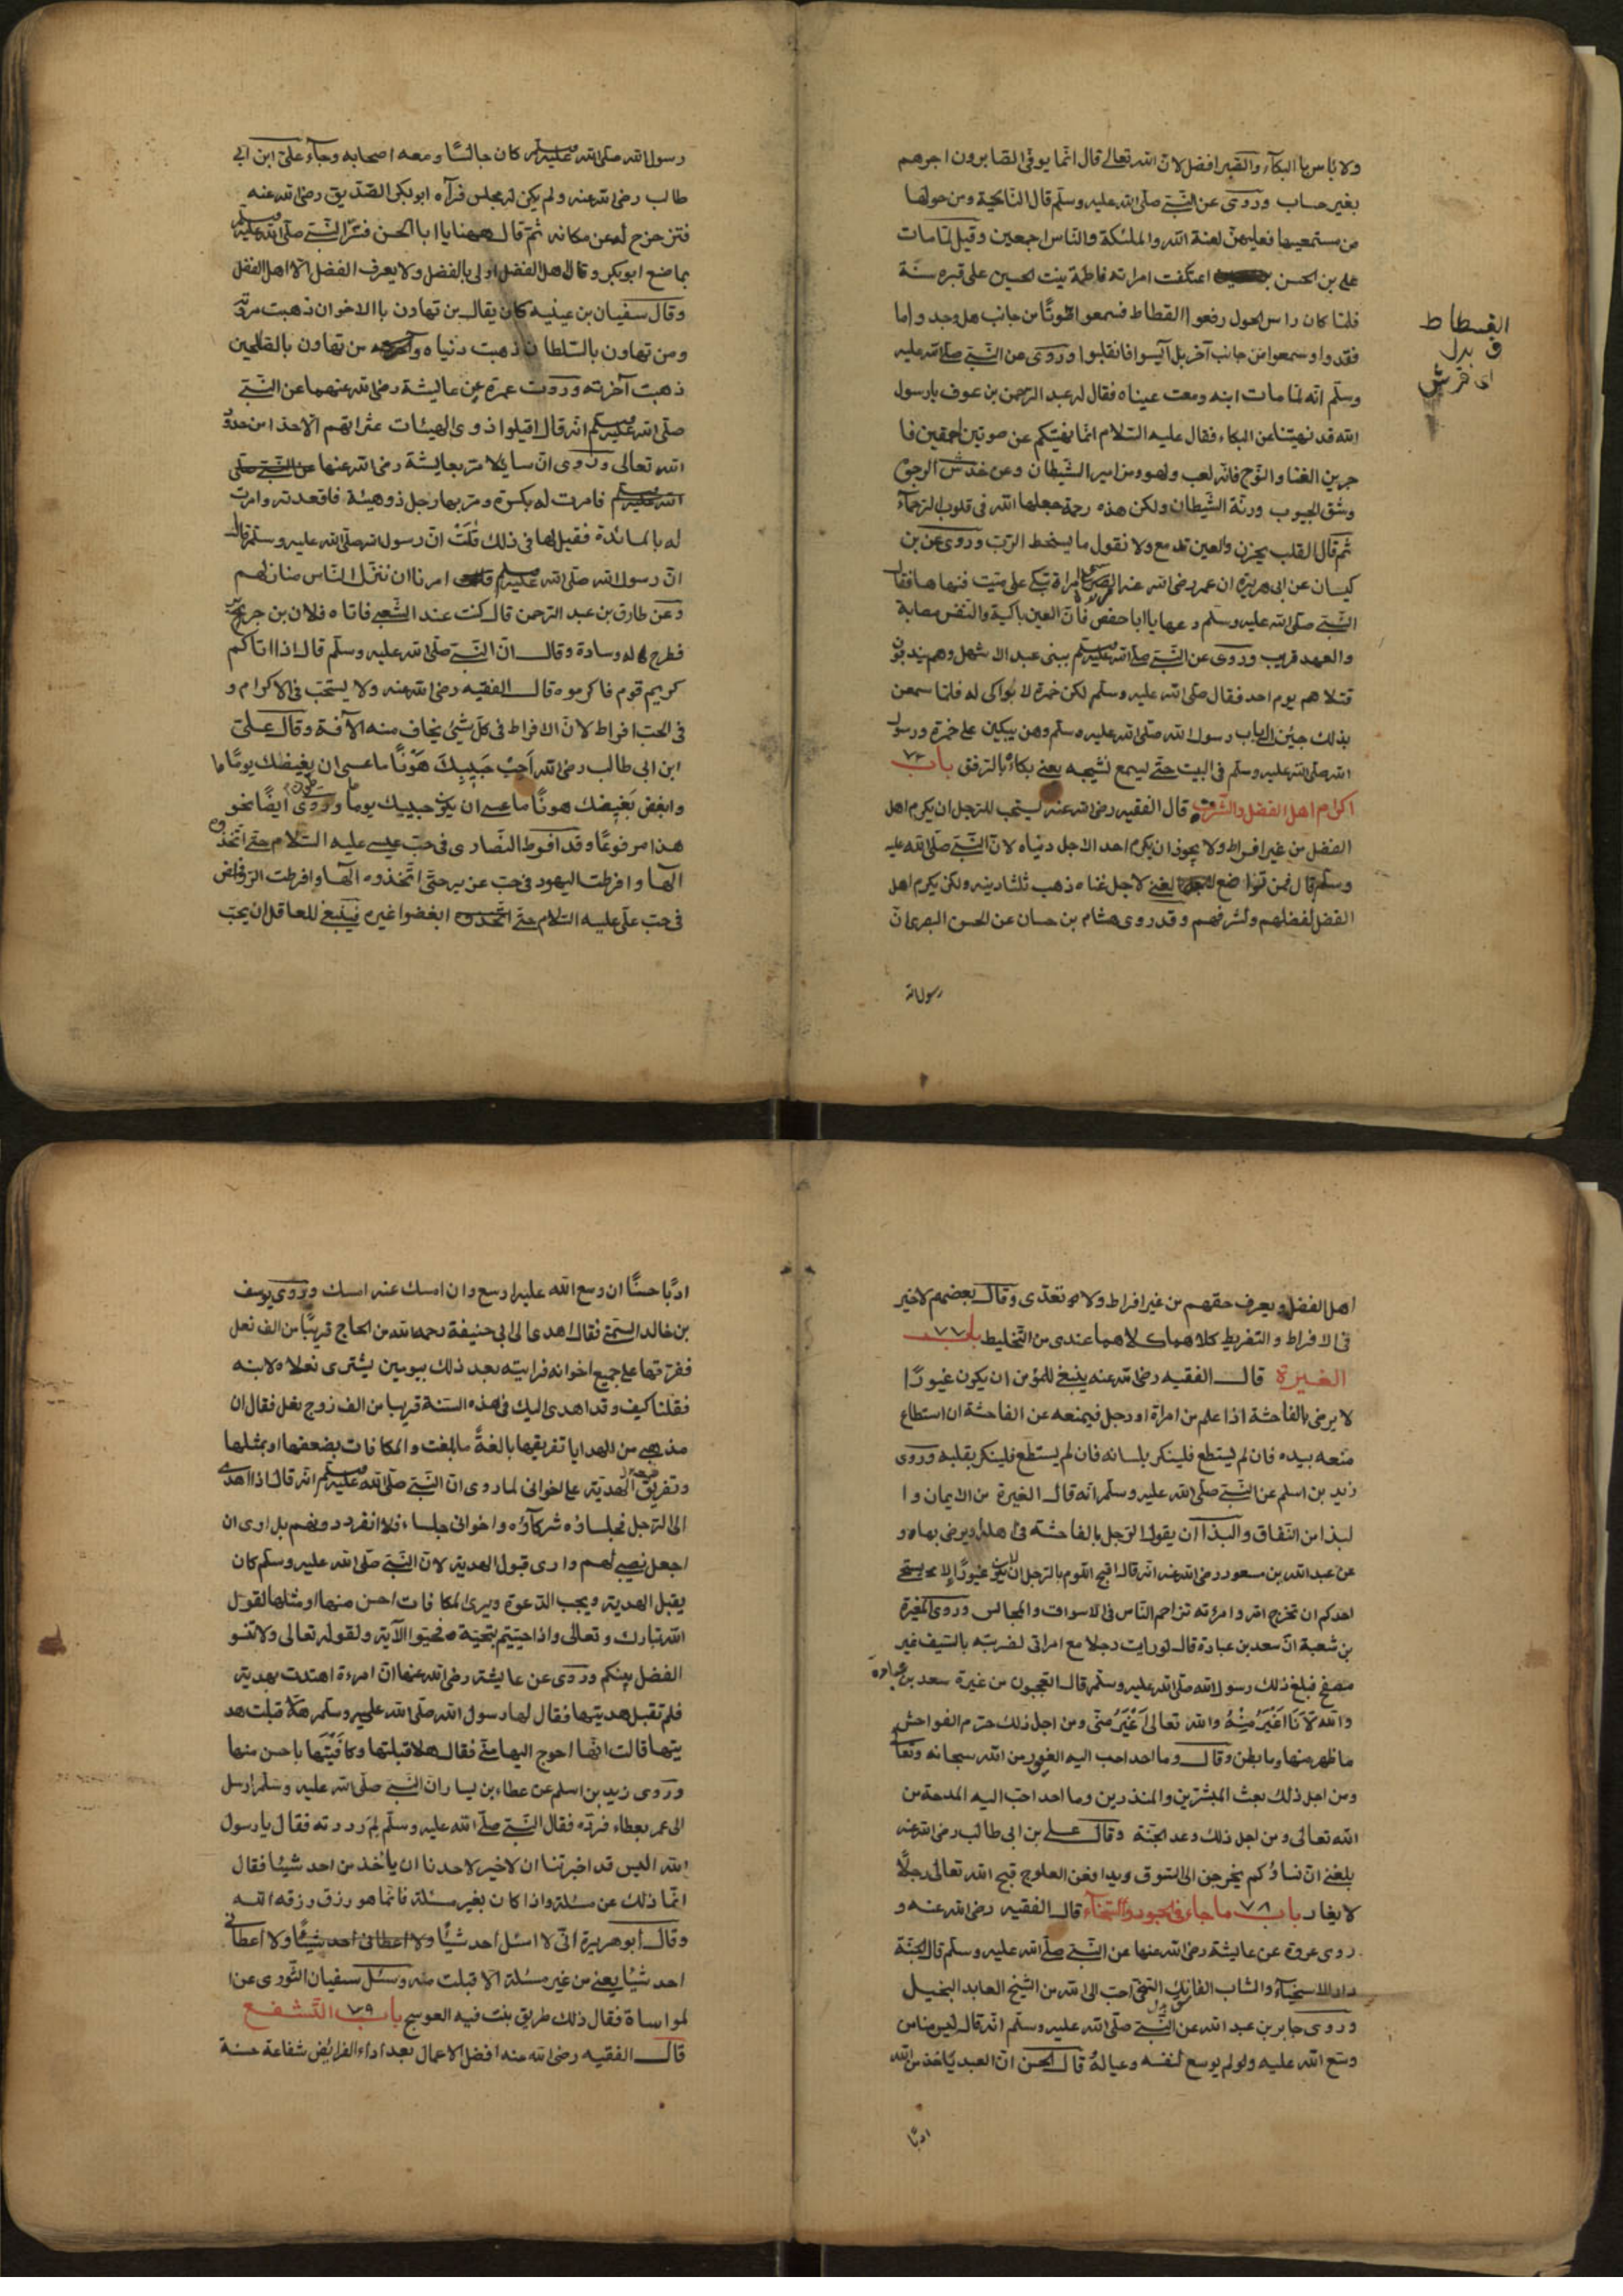 ولا باس بالبكاء والصبر افضل لان الله تعالى قال انما يوفى الصابرون اجرهم
بغير حساب وروى عن النبى صلى الله عليه وسلم قال النايحة ومن حولها
من مستمعيها فعليهن لعنة الله والملئكة والناس اجمعين وقيل لما مات
على بن الحسن اعتكفت امراته فاطمة بنت الحسين على قبره سنة
فلما كان راس الحول رفعوا القطاط فسمعوا صوتا من جانب هل وجدوا ما
فقدوا وسمعوا من جانب آخر بل آيسوا فانقلبوا وروى عن النبى صلى الله عليه
وسلم انه لما مات ابنه ومعت عيناه فقال له عبد الرحمن بن عوف يا رسول
الله قد نهيتنا عن البكاء فقال عليه السلام انما نهيتكم عن صوتين احمقين فا
جرين الغنا والنوح فانه لعب ولهو ومزامير الشيطان وعن خدش الوجوه
وشق الجيوب ورنة الشيطان ولكن هذه رحمة جعلها الله فى قلوب الرحماء
ثم قال القلب يحزن والعين تدمع ولا نقول ما يسخط الرب وروى عن بن
كيسان عن ابى هريرة ان عمر رضى الله عنه ابصر امراة تبكى على ميت فنهاها فقال
النبى صلى الله عليه وسلم دعها يا ابا حفص فان العين باكية والنفس مصابة
والعهد قريب وروى عن النبى صلى الله عليه وسلم ببنى عبد الاشهل وهم يندبون
قتلاهم يوم احد فقال صلى الله عليه وسلم لكن حمزة لا بواكى له فلما سمعن
بذلك جئن الى باب رسول الله صلى الله عليه وسلم وهن يبكين على حمزة ورسول
الله صلى الله عليه وسلم فى البيت حتى ليسمع نشيجه يعنى بكاء بالترفق باب
اكرام اهل الفضل والشرف قال الفقيه رضى الله عنه يستحب للرجل ان يكرم اهل
الفضل من غير افراط ولا يجوز ان يكرم احد الاجل دنياه لان النبى صلى الله عليه
وسلم قال فمن تواضع لغنى لاجل غناه ذهب ثلثا دينه ولكن يكرم اهل
الفضل لفضلهم ولشرفهم وقد روى هشام بن حسان عن الحسن البصرى ان
رسول الله
القسطاط
رسول الله صلى الله عليه وسلم كان جالسا ومعه اصحابه وجاء على ابن ابى
طالب رضى الله عنه ولم يكن له مجلس فرآه ابو بكر الصديق رضى الله عنه
فتزحزح له عن مكانه ثم قال ههنا يا ابا الحسن فسر النبى صلى الله عليه وسلم
بما صنع ابو بكر وقال اهل الفضل اولى بالفضل ولا يعرف الفضل الا اهل الفضل
وقال سفيان بن عيينة كان يقال من تهاون بالاخوان ذهبت مروته
ومن تهاون بالسلطان ذهبت دنياه من تهاون بالصالحين
ذهبت آخرته وروت عمرة عن عايشة رضى الله عنهما عن النبى
صلى الله عليه وسلم انه قال اقيلوا ذوى الهيئات عثراتهم الا حدا من حدود
الله تعالى وروى ان سايلا مر بعايشة رضى الله عنها عن النبى صلى
الله عليه وسلم فامرت له بكسوة ومر بها رجل ذو هيئة فاقعدته وامرت
له بالمائدة فقيل لها فى ذلك قلت ان رسول الله صلى الله عليه وسلم قال
ان رسول الله صلى الله عليه وسلم امرنا ان ننزل الناس منازلهم
وعن طارق بن عبد الرحمن قال كنت عند الشعبى فاتاه فلان بن جرير
فطرح له وسادة وقال ان النبى صلى الله عليه وسلم قال اذا اتاكم
كريم قوم فاكرموه قال الفقيه رضى الله عنه ولا يستحب فى الاكرام و
فى الحب افراط لان الافراط فى كل شيئ يخاف منه الآفة وقال على
ابن ابى طالب رضى الله احب حبيبك هونا ما عسى ان يغيضك يوما ما
وابغض بغيضك هونا ما عسى ان يكون حبيبك يوما وروى ايضا نحو
هذا مرفوعا وقد افرط النصارى فى حب عيسى عليه السلام حتى اتخذوه
الها وافرطت اليهود فى حب عزير حتى اتخذوه الها وافرطت الروافض
فى حب على عليه السلام حتى اتخذوه ابغضوا غيره فينبغى للعاقل ان يحب
اهل الفضل ويعرف حقهم من غير افراط ولا تعدى وقال بعضهم لا خير
فى الافراط والتفريط كلاهما كلاهما عندى من التخليط باب ٧٧
الغيرة قال الفقيه رضى الله عنه ينبغى للمؤمن ان يكون غيورا
لا يرضى بالفاحشة اذا علم من امراة او رجل فيمنعه عن الفاحشة ان استطاع
منعه بيده فان لم يستطع فلينكر بلسانه فان لم يستطع فلينكر بقلبه وروى
زيد بن اسلم عن النبى صلى الله عليه وسلم انه قال الغيرة من الايمان وا
لبذا من النفاق والبذا ان يقول الرجل بالفاحشة فى اهله ويرضى بها و
عن عبد الله بن مسعود رضى الله عنه انه قال اقبح اللوم بالرجل ان لا يكون غيورا الا يستحى
احدكم ان تخرج امراته تزاحم الناس فى الاسواق والمجالس وروى المغيرة
بن شعبة ان سعد بن عبادة قال لو رايت رجلا مع امراتى لضربته بالسيف غير
مصفح فبلغ ذلك رسول الله صلى الله عليه وسلم قال اتعجبون من غيرة سعد بن عبادة
والله لانا اغير منه والله تعالى اغير منى ومن اجل ذلك حرم الفواحش
ما ظهر منها وما بطن وقال وما احد احب اليه الغيور من الله سبحانه وتعالى
ومن اجل ذلك بعث المبشرين والمنذرين وما احد احب اليه المدحة من
الله تعالى ومن اجل ذلك وعد الجنة وقال على بن ابى طالب رضى الله عنه
بلغنى ان نساؤكم يخرجن الى السوق ويدافعن العلوج قبح الله تعالى رجلا
لا يغار باب ٧٨ ما جاء فى الجود والسخاء قال الفقيه رضى الله عنه و
روى عروة عن عايشة رضى الله عنها عن النبى صلى الله عليه وسلم قال الجنة
دار الاسخياء والشاب الفاسق السخى احب الى الله من الشيخ العابد البخيل
وروى جابر بن عبد الله عن النبى صلى الله عليه وسلم انه قال ليس منا من
وسع الله عليه ولو لم يوسع لنفسه وعياله قال الحسن ان العبد ياخذ من الله
ادبا
ادبا حسنا ان وسع الله عليه اوسع وان امسك عنه امسك وروى يوسف
بن خالد السمتى فقال اهدى الى ابى حنيفة رحمه الله من الحاج قريبا من الف نعل
ففرقها على جميع اخوانه فرايته بعد ذلك بيومين يشترى نعلا لابنه
فقلنا كيف وقد اهدى اليك فى هذه السنة قريبا من الف زوج نعل فقال ان
مذهبى من الهدايا تفريقها بالغة ما بلغت والمكافات بضعفها او بمثلها
وتفريق الهدية على اخوانى لما روى ان النبى صلى الله عليه وسلم انه قال اذا اهدى
الى الرجل فجلساؤه شركاؤه واخوانى جلساء فلا انفرد دونهم بل ارى ان
اجعل نصيبى لهم وارى قبول الهدية لان النبى صلى الله عليه وسلم كان
يقبل الهدية ويجب الدعوة ويرى المكافات احسن منها او مثلها لقول
الله تبارك وتعالى واذا حييتم بتحية فحيوا الآية ولقوله تعالى ولا تنسو
الفضل بينكم وروى عن عايشة رضى الله عنها ان امرءة اهتدت بهدية
فلم تقبل هديتها فقال لها رسول الله صلى الله عليه وسلم هلا قبلت هد
يتها قالت انها احوج اليها منى فقال هلا قبلتها وكافيتها باحسن منها
وروى زيد بن اسلم عن عطاء بن يسار ان النبى صلى الله عليه وسلم ارسل
الى عمر بعطاء فرده فقال النبى صلى الله عليه وسلم لم رددته فقال يا رسول
الله اليس قد اخبرتنا ان لا خير لاحدنا ان ياخذ من احد شيئا فقال
انما ذلك عن مسئلة واذا كان بغير مسئلة فانما هو رزق رزقه الله
وقال ابو هريرة انى لا اسئل احد شيئا ولا اعطانى احد شيئا ولا اعطانى
احد شيئا يعنى من غير مسئلة الا قبلت منه وسئل سفيان الثورى عن ا
لمواساة فقال ذلك طريق بنت فيه العوسج باب ٧٩ التشفع
قال الفقيه رضى الله عنه افضل الاعمال بعد اداء الفرائض شفاعة حسنة